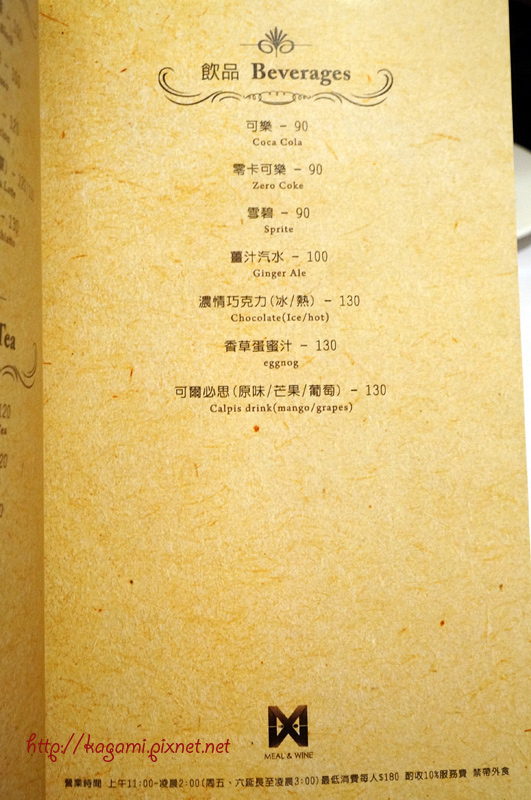 飲品 Beverages
可樂 - 90
Coca Cola
零卡可樂 - 90
Zero Coke
雪碧 - 90
Sprite
薑汁汽水 - 100
Ginger Ale
濃情巧克力(冰/熱) - 130
Chocolate(Ice/hot)
香草蛋蜜汁 - 130
eggnog
可爾必思(原味/芒果/葡萄) - 130
Calpis drink(mango/grapes)
Tea
120
20
MEAL & WINE
http://kagami.pixnet.net
營業時間 上午11:00-凌晨2:00(周五、六延長至凌晨3:00)最低消費每人$180 酌收10%服務費 禁帶外食